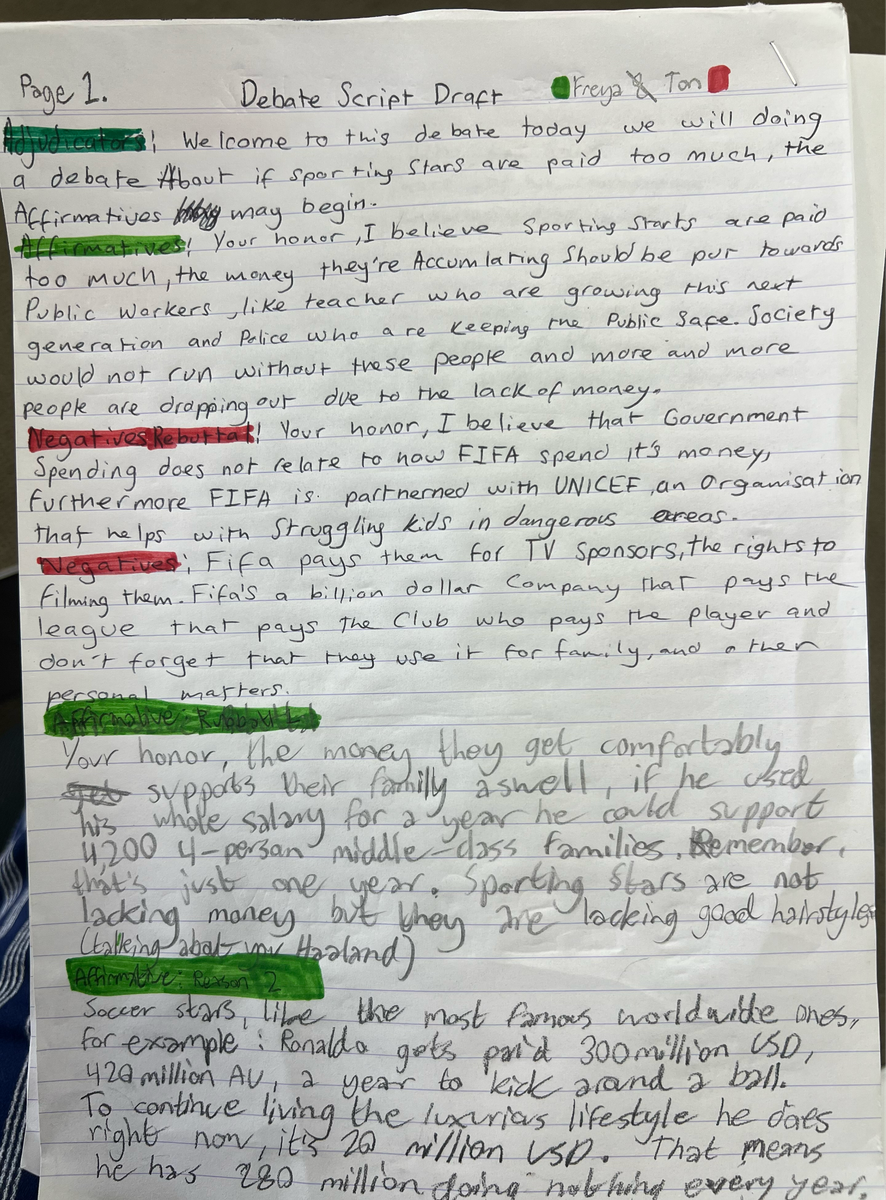 Page 1. Debate Script Draft Freya & Ton
Adjudicators: Welcome to this debate today we will doing
a debate About if sporting stars are paid too much, the
Affirmatives may begin.
Affirmatives: Your honor, I believe Sporting Starts are paid
too much, the money they're Accumlaring Should be pur towards
Public workers, like teacher who are growing this next
generation and Police who are Keeping the Public Safe. Society
would not run without these people and more and more
people are dropping out due to the lack of money.
Negatives Rebuttal: Your honor, I believe that Government
Spending does not relate to how FIFA spend it's money,
furthermore FIFA is partnerned with UNICEF, an Organisation
that helps with Struggling kids in dangerous areas.
Negatives: Fifa pays them for TV Sponsors, the rights to
filming them. Fifa's a billion dollar Company that pays the
league that pays the Club who pays the player and
don't forget that they use it for family, and other
personal matters.
Affirmative: Rubbattl
Your honor, the money they get comfortably
supports their family aswell, if he used
his whole salary for a year he could support
4,200 4-persan middle-class families. Remember,
that's just one year. Sporting Stars are not
lacking money but they are lacking good hairstyles
(talking abat you Haaland)
Affirmative: Reason 2
Soccer stars, like the most famous worldwide ones,
for example: Ronaldo gets paid 300 million USD,
420 million AU, a year to kick around a ball.
To continue living the luxurias lifestyle he does
right now, it's 20 million USD. That means
he has 280 million doing nothing every year.